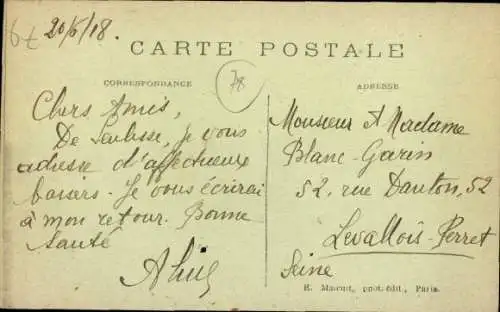 20/5/18.
CARTE POSTALE
78
CORRESPONDANCE
Chers Amis,
De Senlisse, je vous
adresse d'affectueux
baisers. Je vous écrirai
à mon retour. Bonne
Santé
ADRESSE
Monsieur & Madame
Blanc-Garin
52, rue Danton, 52
Levallois-Perret
Seine
phot. édit., Paris.